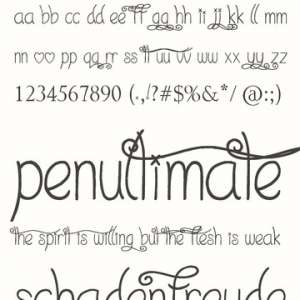 aa bb cc dd ee ff gg hh ii jj kk ll mm
nn ♡♡ pp qq rr ss tt uu vv ww xx yy zz
1234567890 (.,!?#$%&*/ @:;)
penultimate
the spirit is willing but the flesh is weak
schadenfreude